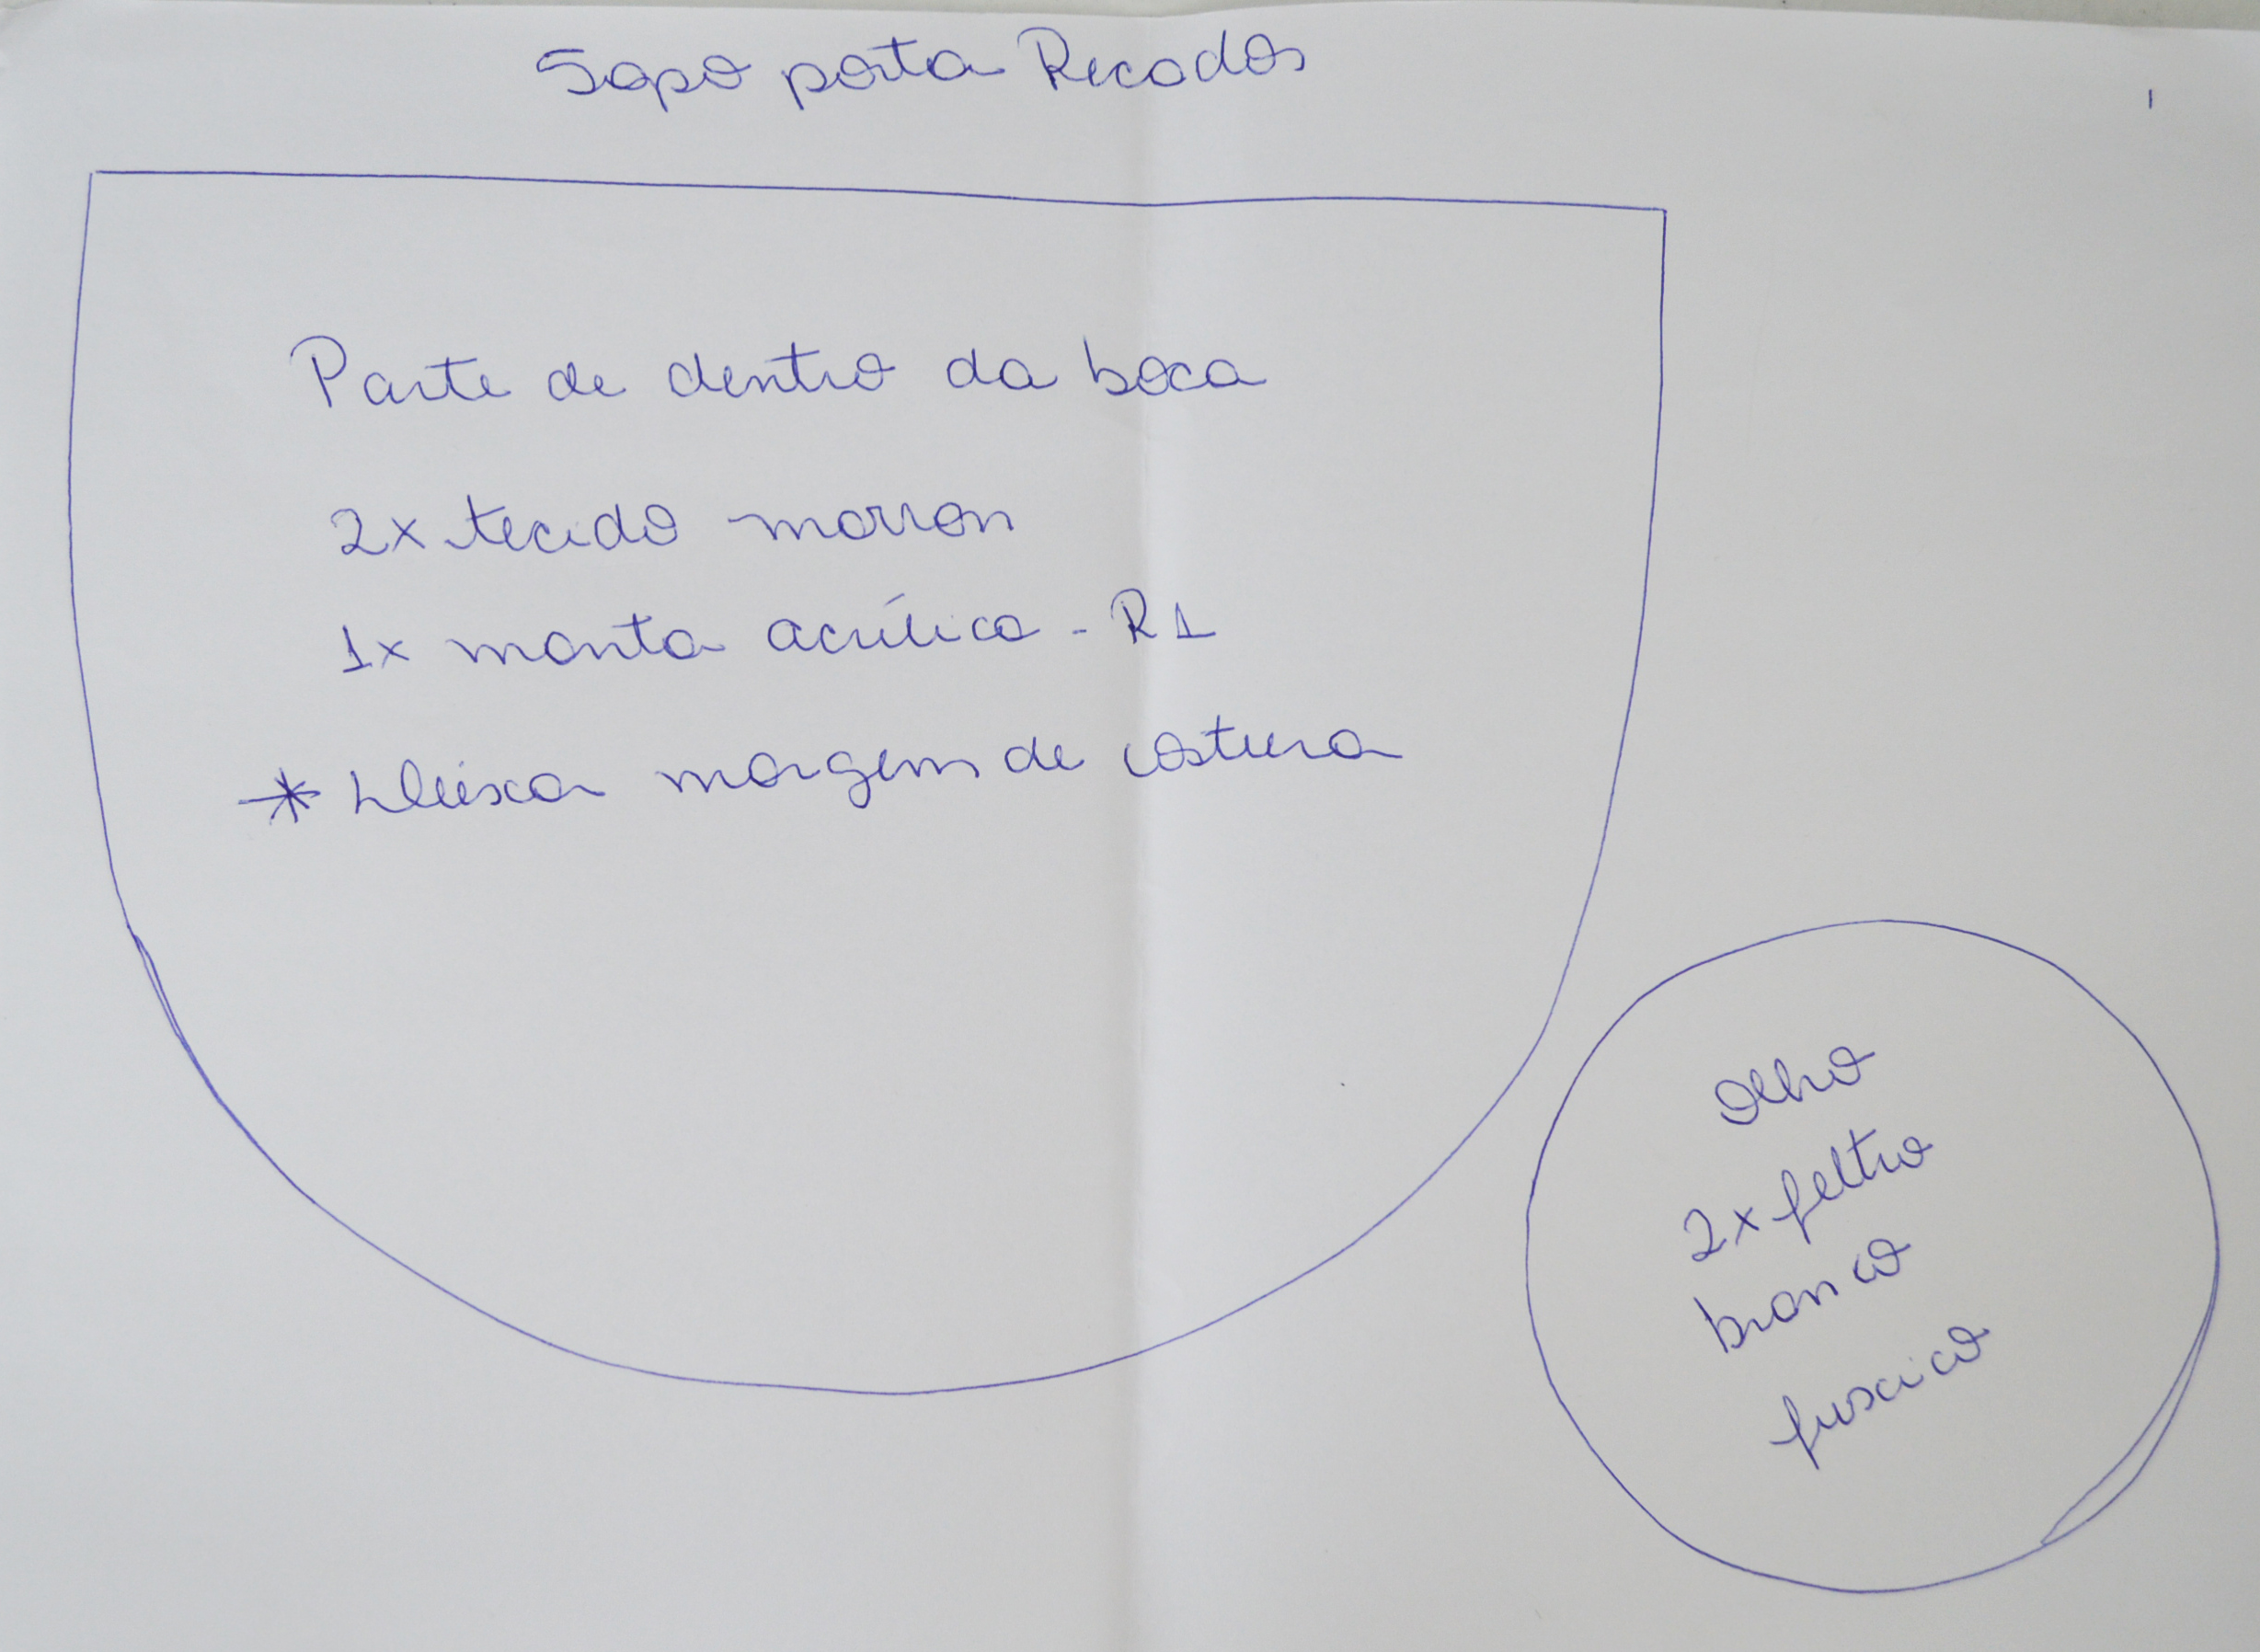 Sapo porta Recados
Parte de dentro da boca
2x tecido marron
1x manta acrílica - R1
* Deixa margem de costura
olho
2x feltro
branco
fuxico